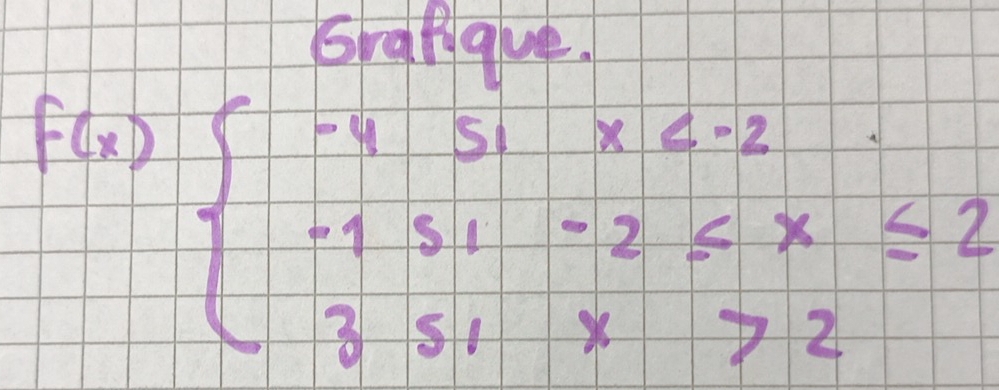 Grafique.
f(x) { -4 si x < -2
-1 si -2 ≤ x ≤ 2
3 si x > 2